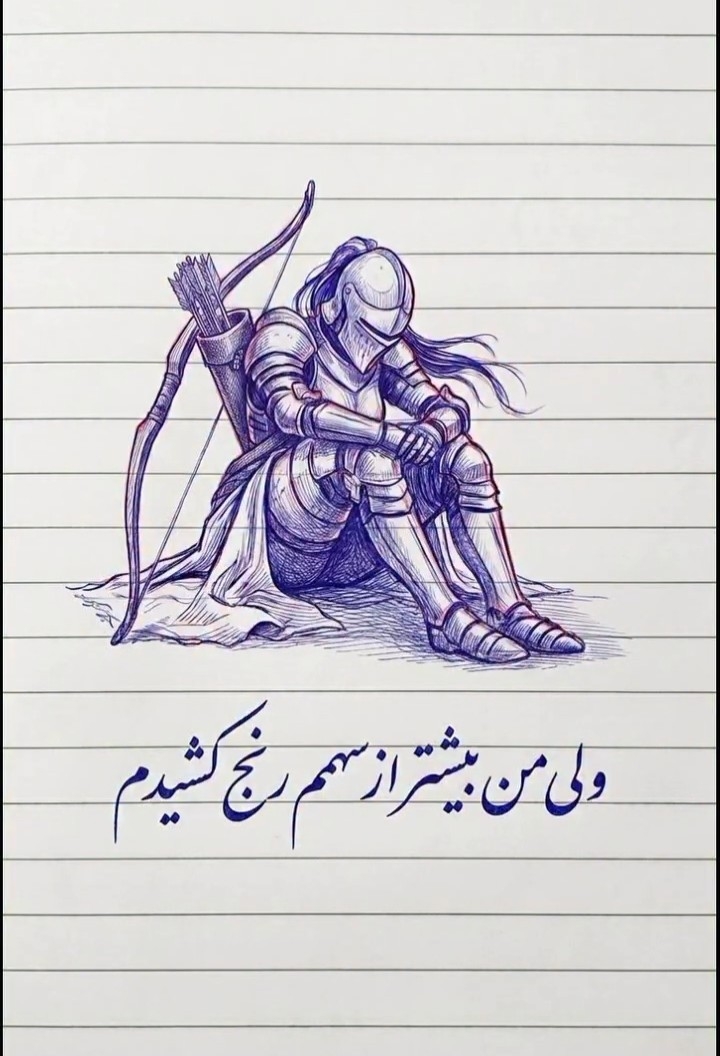 ولی من بیشتر از سهمم رنج کشیدم